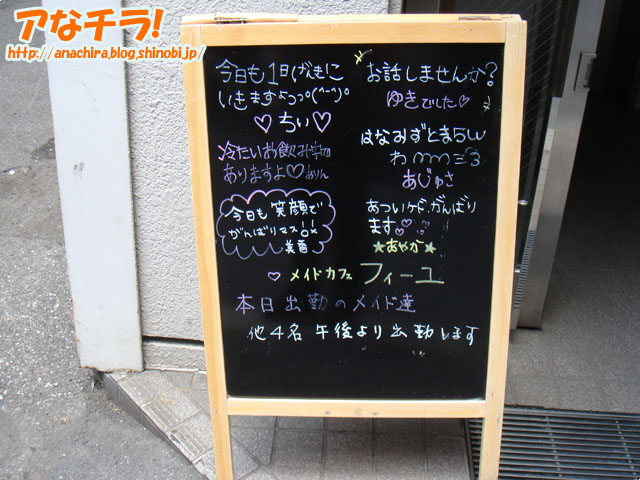 アなチラ!
http://anachira.blog.shinobi.jp/
今日も1日げんきに
いきますよっっ°(^-^)°
♡ちぃ♡
冷たいお飲み物
ありますよ♡ありん
今日も笑顔で
がんばりマス!!
美音
お話しませんか?
ゆきでした♡
はなみずとまらんw
あじゅさ
あついケド、がんばり
ます♡
★あやか★
♡メイドカフェ フィーユ
本日出勤のメイド達
他4名 午後より出勤します